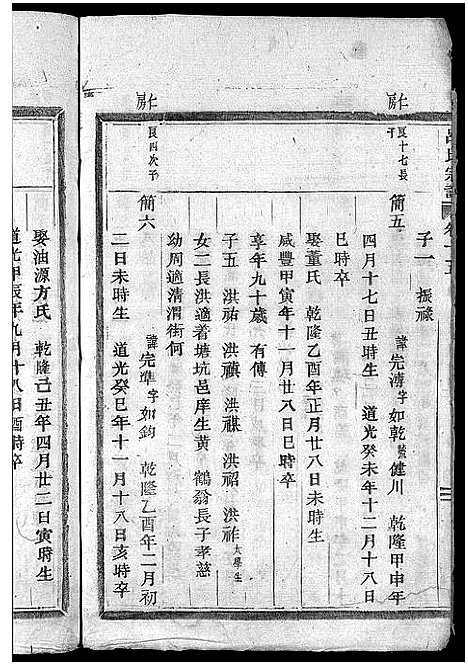 呂氏宗譜 卷十五
子一 振祿
仁房 良十七長子
簡五 諱完淸字如乾號健川 乾隆甲申年
四月十七日丑時生 道光癸未年十二月十八日
巳時卒
娶董氏 乾隆乙酉年正月廿八日未時生
咸豐甲寅年十一月廿八日巳時卒
享年九十歲 有傳
子五 洪祐 洪禥 洪祺 洪祒 洪祚太學生
女二長洪適着塘坑邑庠生黃 鶴翁長子孝慈
幼周適清渭街何
仁房 良四次子
簡六 諱完準字如鈞 乾隆乙酉年二月初
二日未時生 道光癸巳年十一月十八日亥時卒
娶油源方氏 乾隆己丑年四月廿二日寅時生
道光甲辰年九月十八日酉時卒